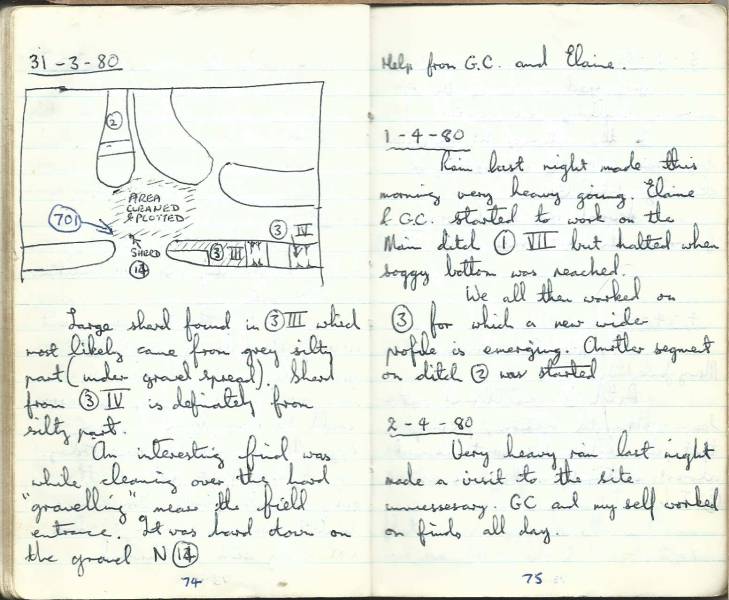 31-3-80
②
AREA
CLEANED
& PLOTTED
701
③ IV
SHERD
⑭
③ III
Large sherd found in ③ III which
most likely came from grey silty
part (under gravel spread). Sherd
from ③ IV is definately from
silty part.
An interesting find was
while cleaning over the hard
"gravelling" near the field
entrance. It was hard down on
the gravel N ⑭
74
Help from G.C. and Elaine.
1-4-80
Rain last night made this
morning very heavy going. Elaine
& G.C. started to work on the
Main ditch ① VII but halted when
soggy bottom was reached.
We all then worked on
③ for which a new wide
profile is emerging. Another segment
on ditch ② was started
2-4-80
Very heavy rain last night
made a visit to the site
unnessesary. GC and my self worked
on finds all day.
75